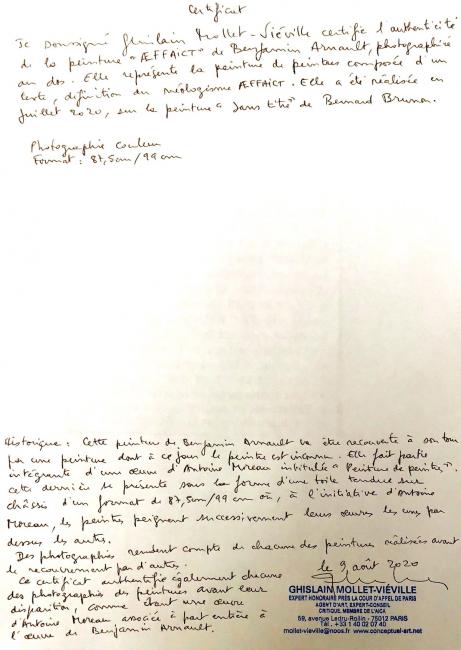 Certificat
Je soussigné Ghislain Mollet-Viéville certifie l'authenticité
de la peinture "ÆFFAICT" de Benjamin Arnault, photographiée
au dos. Elle représente la peinture de peintres composée d'un
texte, définition du néologisme ÆFFAICT. Elle a été réalisée en
juillet 2020, sur la peinture "Sans titre" de Bernard Brunon.
Photographie couleur
Format : 87,5cm/99cm
Historique : Cette peinture de Benjamin Arnault va être recouverte à son tour
par une peinture dont à ce jour le peintre est inconnu. Elle fait partie
intégrante d'une œuvre d'Antoine Moreau intitulée "Peinture de peintres".
Cette dernière se présente sous la forme d'une toile tendue sur
châssis d'un format de 87,5cm/99cm où, à l'initiative d'Antoine
Moreau, les peintres peignent successivement leurs œuvres les unes par
dessus les autres.
Des photographies rendent compte de chacune des peintures réalisées avant
le recouvrement par d'autres.
Ce certificat authentifie également chacune
des photographies des peintures avant leur
disparition, comme étant une œuvre
d'Antoine Moreau associée à part entière à
l'œuvre de Benjamin Arnault.
le 9 août 2020
GHISLAIN MOLLET-VIÉVILLE
EXPERT HONORAIRE PRÈS LA COUR D'APPEL DE PARIS
AGENT D'ART, EXPERT-CONSEIL
CRITIQUE, MEMBRE DE L'AICA
59, avenue Ledru-Rollin - 75012 PARIS
Tél. : +33 1 40 02 07 40
mollet-viéville@noos.fr www.conceptual-art.net